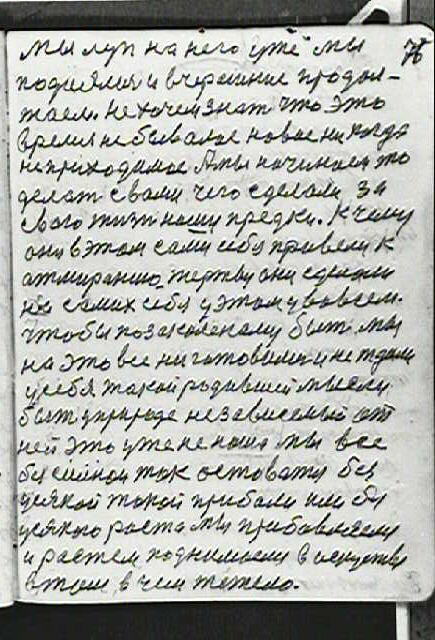 мы луп на него уже мы 76
поднялися и вчерашние продол-
жаем. Не хочем знат что это
время небывалое новое никогда
неприходимое А мы начинаем то
делат своим чего сделали за
свого жизни наши предки. К чему
они в этом сами себя привели к
отмиранию, жертву они сделали
из самих себя у этом у во всем.
чтобы позаконному быт. мы
на это все ни готовили и не ждали
у себя такой родившей мысли
быт у природе независемый от
ней это уже не наше мы все
бессильной так остоватся без
усякой такой прибали или без
усякого роста мы прибавляем
и растем поднимаем в искуству
в том, в чем тежело.